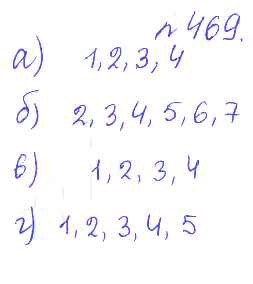 №469.
а) 1, 2, 3, 4
б) 2, 3, 4, 5, 6, 7
в) 1, 2, 3, 4
г) 1, 2, 3, 4, 5